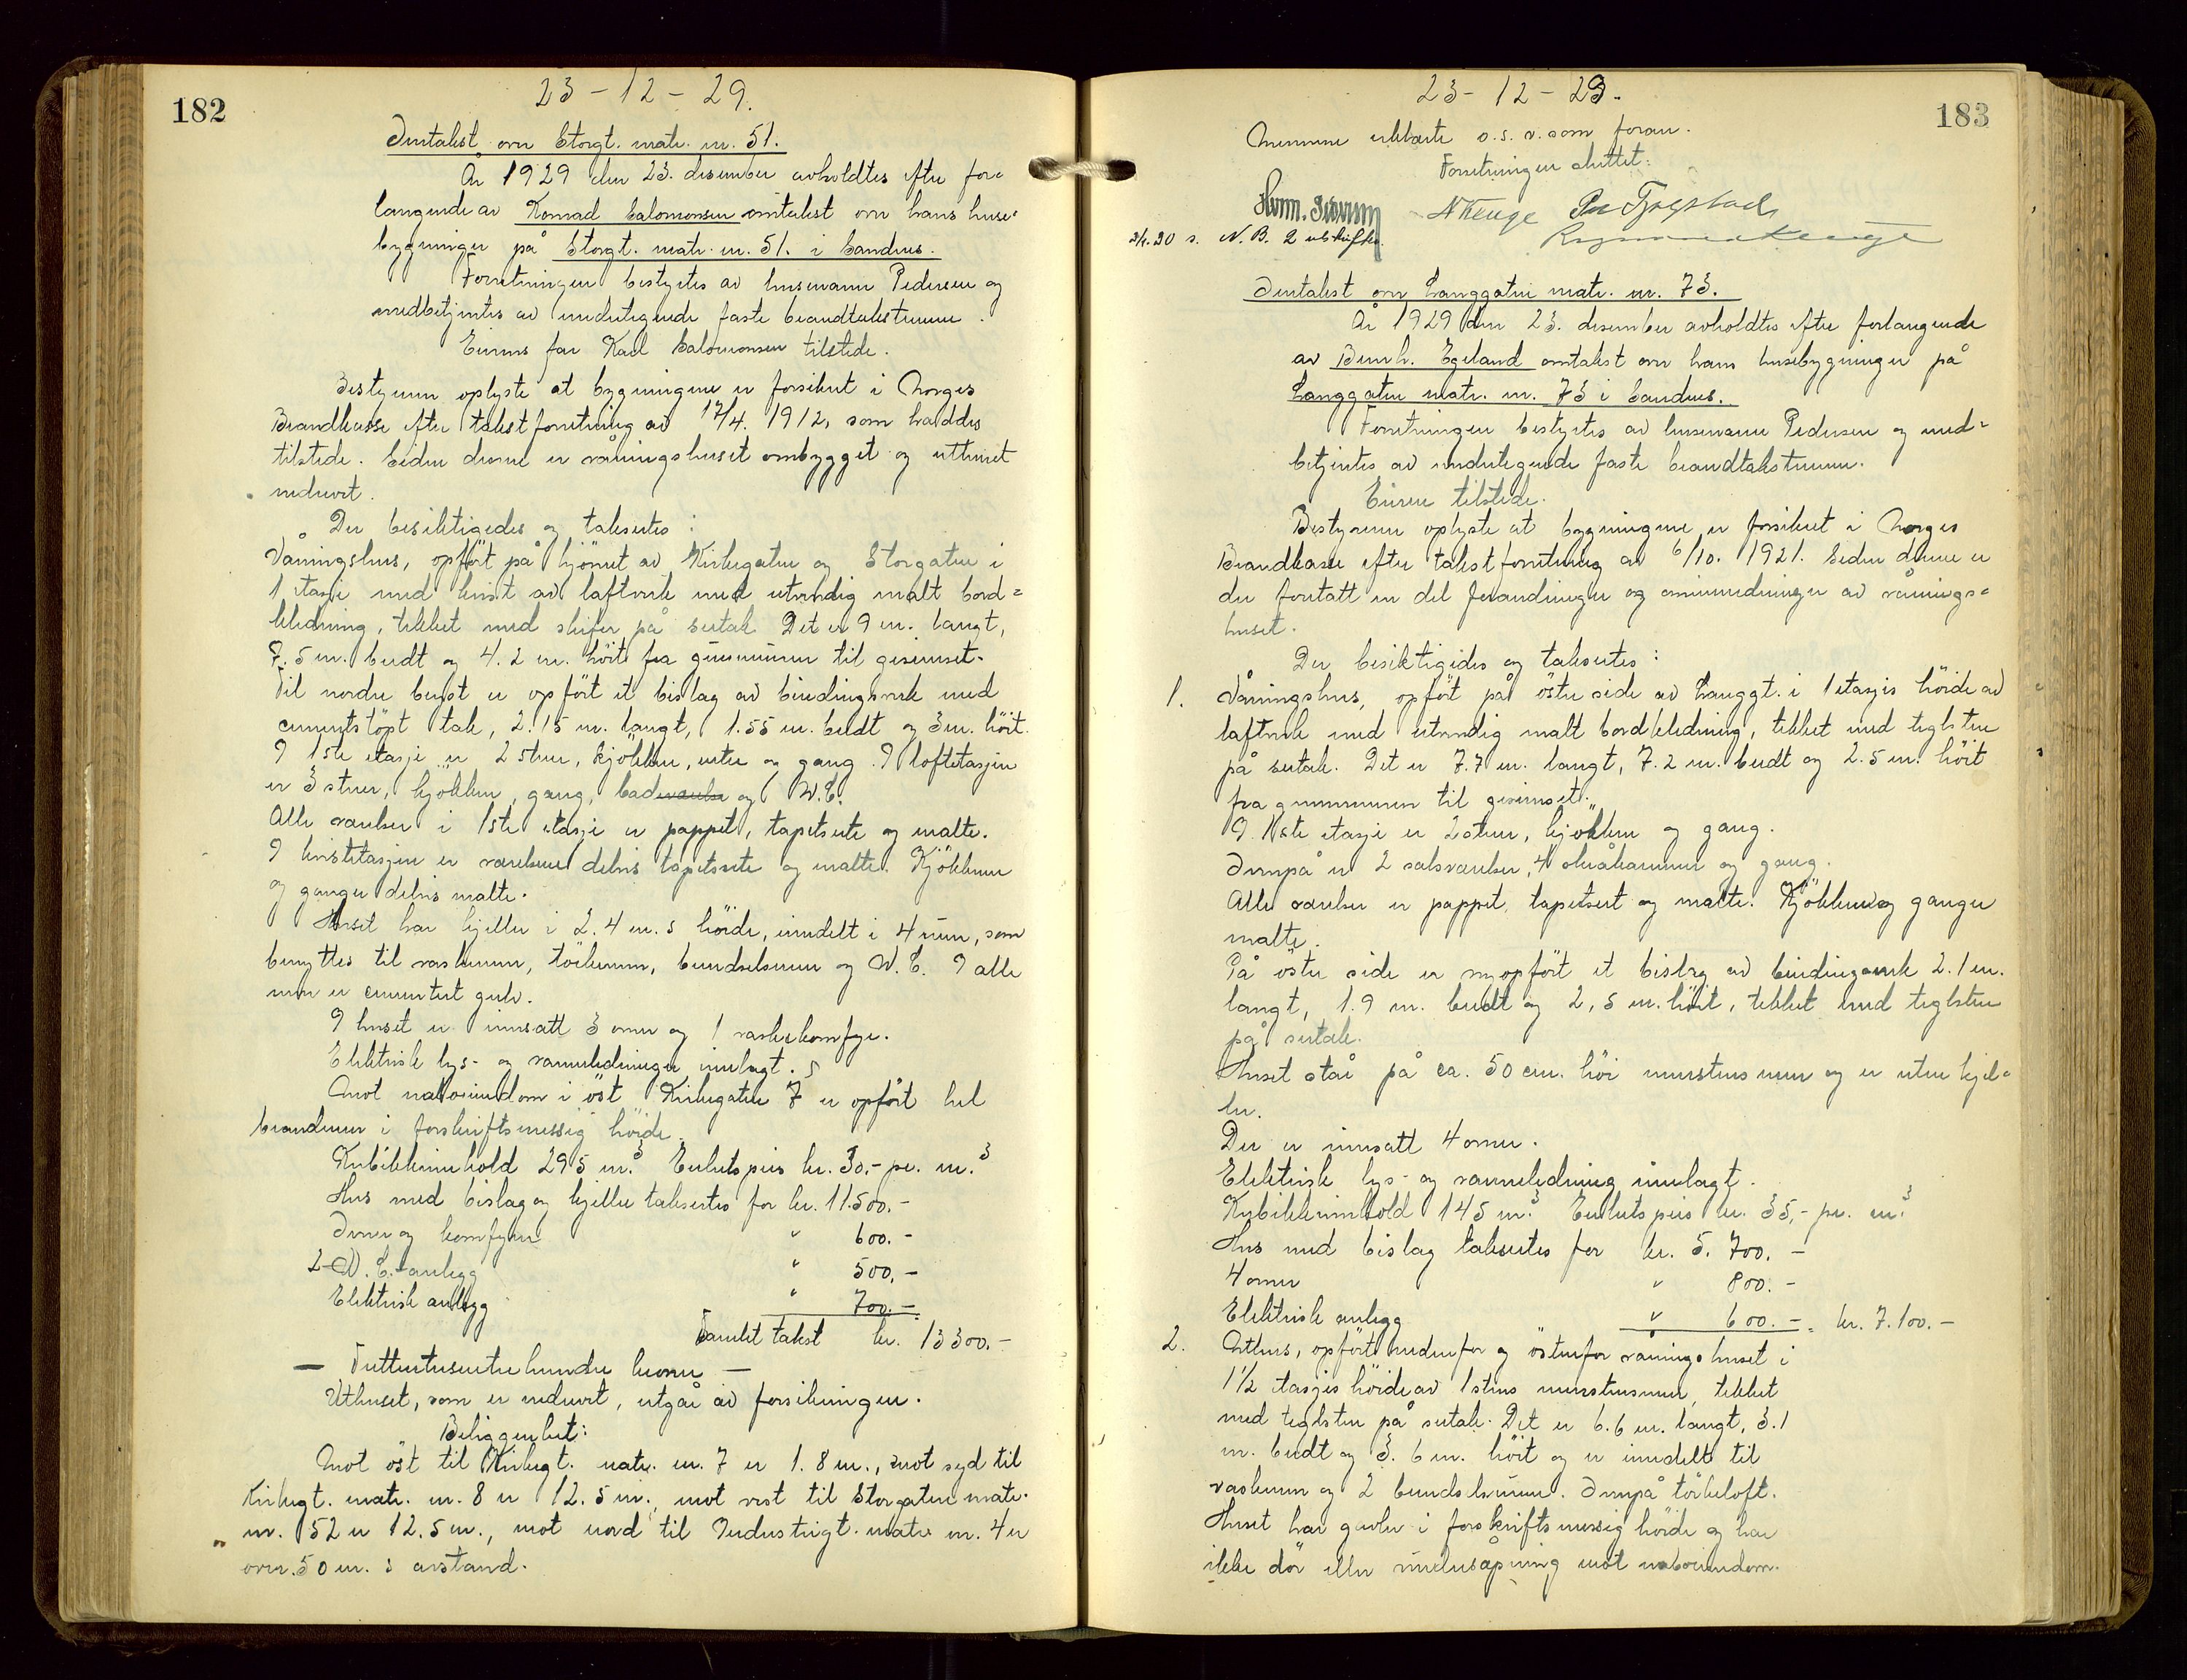 182
23-12-29.
Omtakst over Storgt. matr. nr. 51.
År 1929 den 23. desember avholdtes efter for-
langende av Konrad Salomonsen omtakst over hans huse-
bygninger på Storgt. matr. nr. 51. i Sandnes.
Forretningen bestyrtes av lensmann Pedersen og
medbetjentes av undertegnede faste branntakstmenn.
Eierens far Karl Salomonsen tilstede.
Bestyreren oplyste at bygningene er forsikret i Norges
Brandkasse efter takstforretning av 17/4. 1912, som haddes
tilstede. Siden denne er våningshuset ombygget og uthuset
nedrevet.
Der besiktigedes og taksertes:
Våningshus, opført på hjørnet av Kirkegaten og Storgaten i
1 etasje med kvist av laftverk med utvendig malt bord-
kledning, tekket med skifer på sutak. Det er 9 m. langt,
7.5 m. bredt og 4.2 m. høit fra grunnmuren til gesimset.
Til nordre bust er opført et bislag av bindingsverk med
cementstøpt tak, 2.15 m. langt, 1.55 m. bredt og 3 m. høit.
I 1ste etasje er 2 stuer, kjøkken, entre og gang. I loftetasjen
er 3 stuer, kjøkken, gang, badeværelse og W.C.
Alle værelser i 1ste etasje er pappet, tapetserte og malte.
I kvistetasjen er værelsene delvis tapetserte og malte. Kjøkkenen
og ganger delvis malte.
Huset har kjeller i 2.4 m.s høide, inndelt i 4 rum, som
benyttes til vaskerum, tørkerum, brendselsrum og W.C. I alle
rum er cementert gulv.
I huset er innsatt 3 ovner og 1 vaskekomfyr.
Elektrisk lys- og varmeledninger innlagt.
Mot naboeiendom i øst Kirkegaten 7 er opført hel
brandmur i forskriftsmessig høide.
Kubikkinnhold 295 m.³ Enhetspris kr. 30.- pr. m.³
Hus med bislag og kjeller taksertes for kr. 11.500.-
Ovner og komfyrer " 600.-
2 W.C.-anlegg " 500.-
Elektrisk anlegg " 700.-
Samlet takst kr. 13300.-
— Trettentusentrehundre kroner —
Uthuset, som er nedrevet, utgår av forsikringen.
Beliggenhet:
Mot øst til Kirkegt. matr. nr. 7 er 1.8 m., mot syd til
Kirkegt. matr. nr. 8 er 12.5 m., mot vest til Storgaten matr.
nr. 52 er 12.5 m., mot nord til Industrigt. matr. nr. 4 er
over 50 m.s avstand.
183
23-12-29.
Mennene erklærte o.s.v. som foran.
Forretningen sluttet:
N Kenge
3/1.30 s. N.B. 2 utskrifter.
Omtakst over Langgaten matr. nr. 73.
År 1929 den 23. desember avholdtes efter forlangende
av Bernh. Egeland omtakst over hans husebygninger på
Langgaten matr. nr. 73 i Sandnes.
Forretningen bestyrtes av lensmann Pedersen og med-
betjentes av undertegnede faste brandtakstmenn.
Eieren tilstede.
Bestyreren oplyste at bygningene er forsikret i Norges
Brandkasse efter takstforretning av 6/10. 1921. Siden denne er
der foretatt en del forandringer og ominnredninger av vånings-
huset.
Der besiktigedes og taksertes:
1. Våningshus, opført på østre side av Langgt. i 1 etasjes høide av
laftverk med utvendig malt bordkledning, tekket med teglsten
på sutak. Det er 7.7 m. langt, 7.2 m. bredt og 2.5 m. høit
fra grunnmuren til gesimset.
I 1ste etasje er 2 stuer, kjøkken og gang.
Ovenpå er 2 soveværelser, 4 skråkammer og gang.
Alle værelser er pappet, tapetsert og malte. Kjøkken og ganger
malte.
På østre side er nyopført et bislag av bindingsverk 2.1 m.
langt, 1.9 m. bredt og 2,5 m. høit, tekket med teglsten
på sutak.
Huset står på ca. 50 cm. høi murstensmur og er uten kjel-
ler.
Der er innsatt 4 ovner.
Elektrisk lys- og varmeledning innlagt.
Kubikkinnhold 145 m.³ Enhetspris kr. 35,- pr. m.³
Hus med bislag taksertes for kr. 5.700.-
4 ovner " 800.-
Elektrisk anlegg " 600.- = kr. 7.100.-
2. Uthus, opført nedenfor og østenfor våningshuset i
1½ etasjes høide av 1stens murstensmur, tekket
med teglsten på sutak. Det er 6.6 m. langt, 3.1
m. bredt og 3.6 m. høit og er inndelt til
vaskerum og 2 brendselsrum. Ovenpå tørkeloft.
Huset har gavler i forskriftsmessig høide og har
ikke dør eller vindusåpning mot naboeiendom.